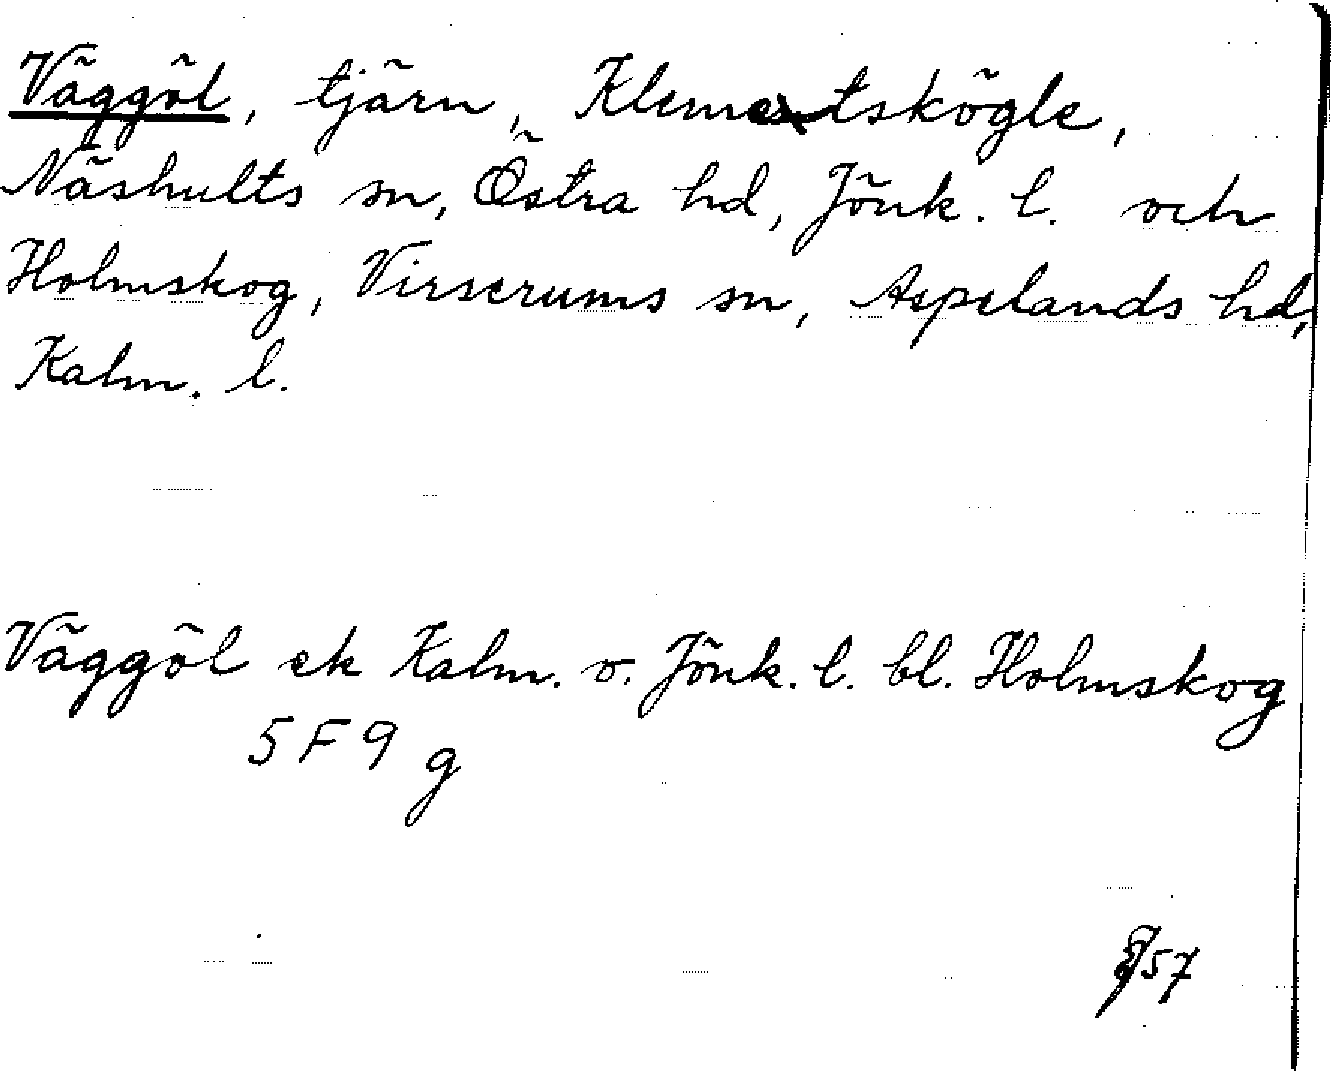 Väggöl, tjärn, Klemetskögle,
Näshults sn, Östra hd, Jönk. l. och
Holmskog, Virserums sn, Aspelands hd,
Kalm. l.
Väggöl ek Kalm. o. Jönk. l. bl. Holmskog
5F9 g
57